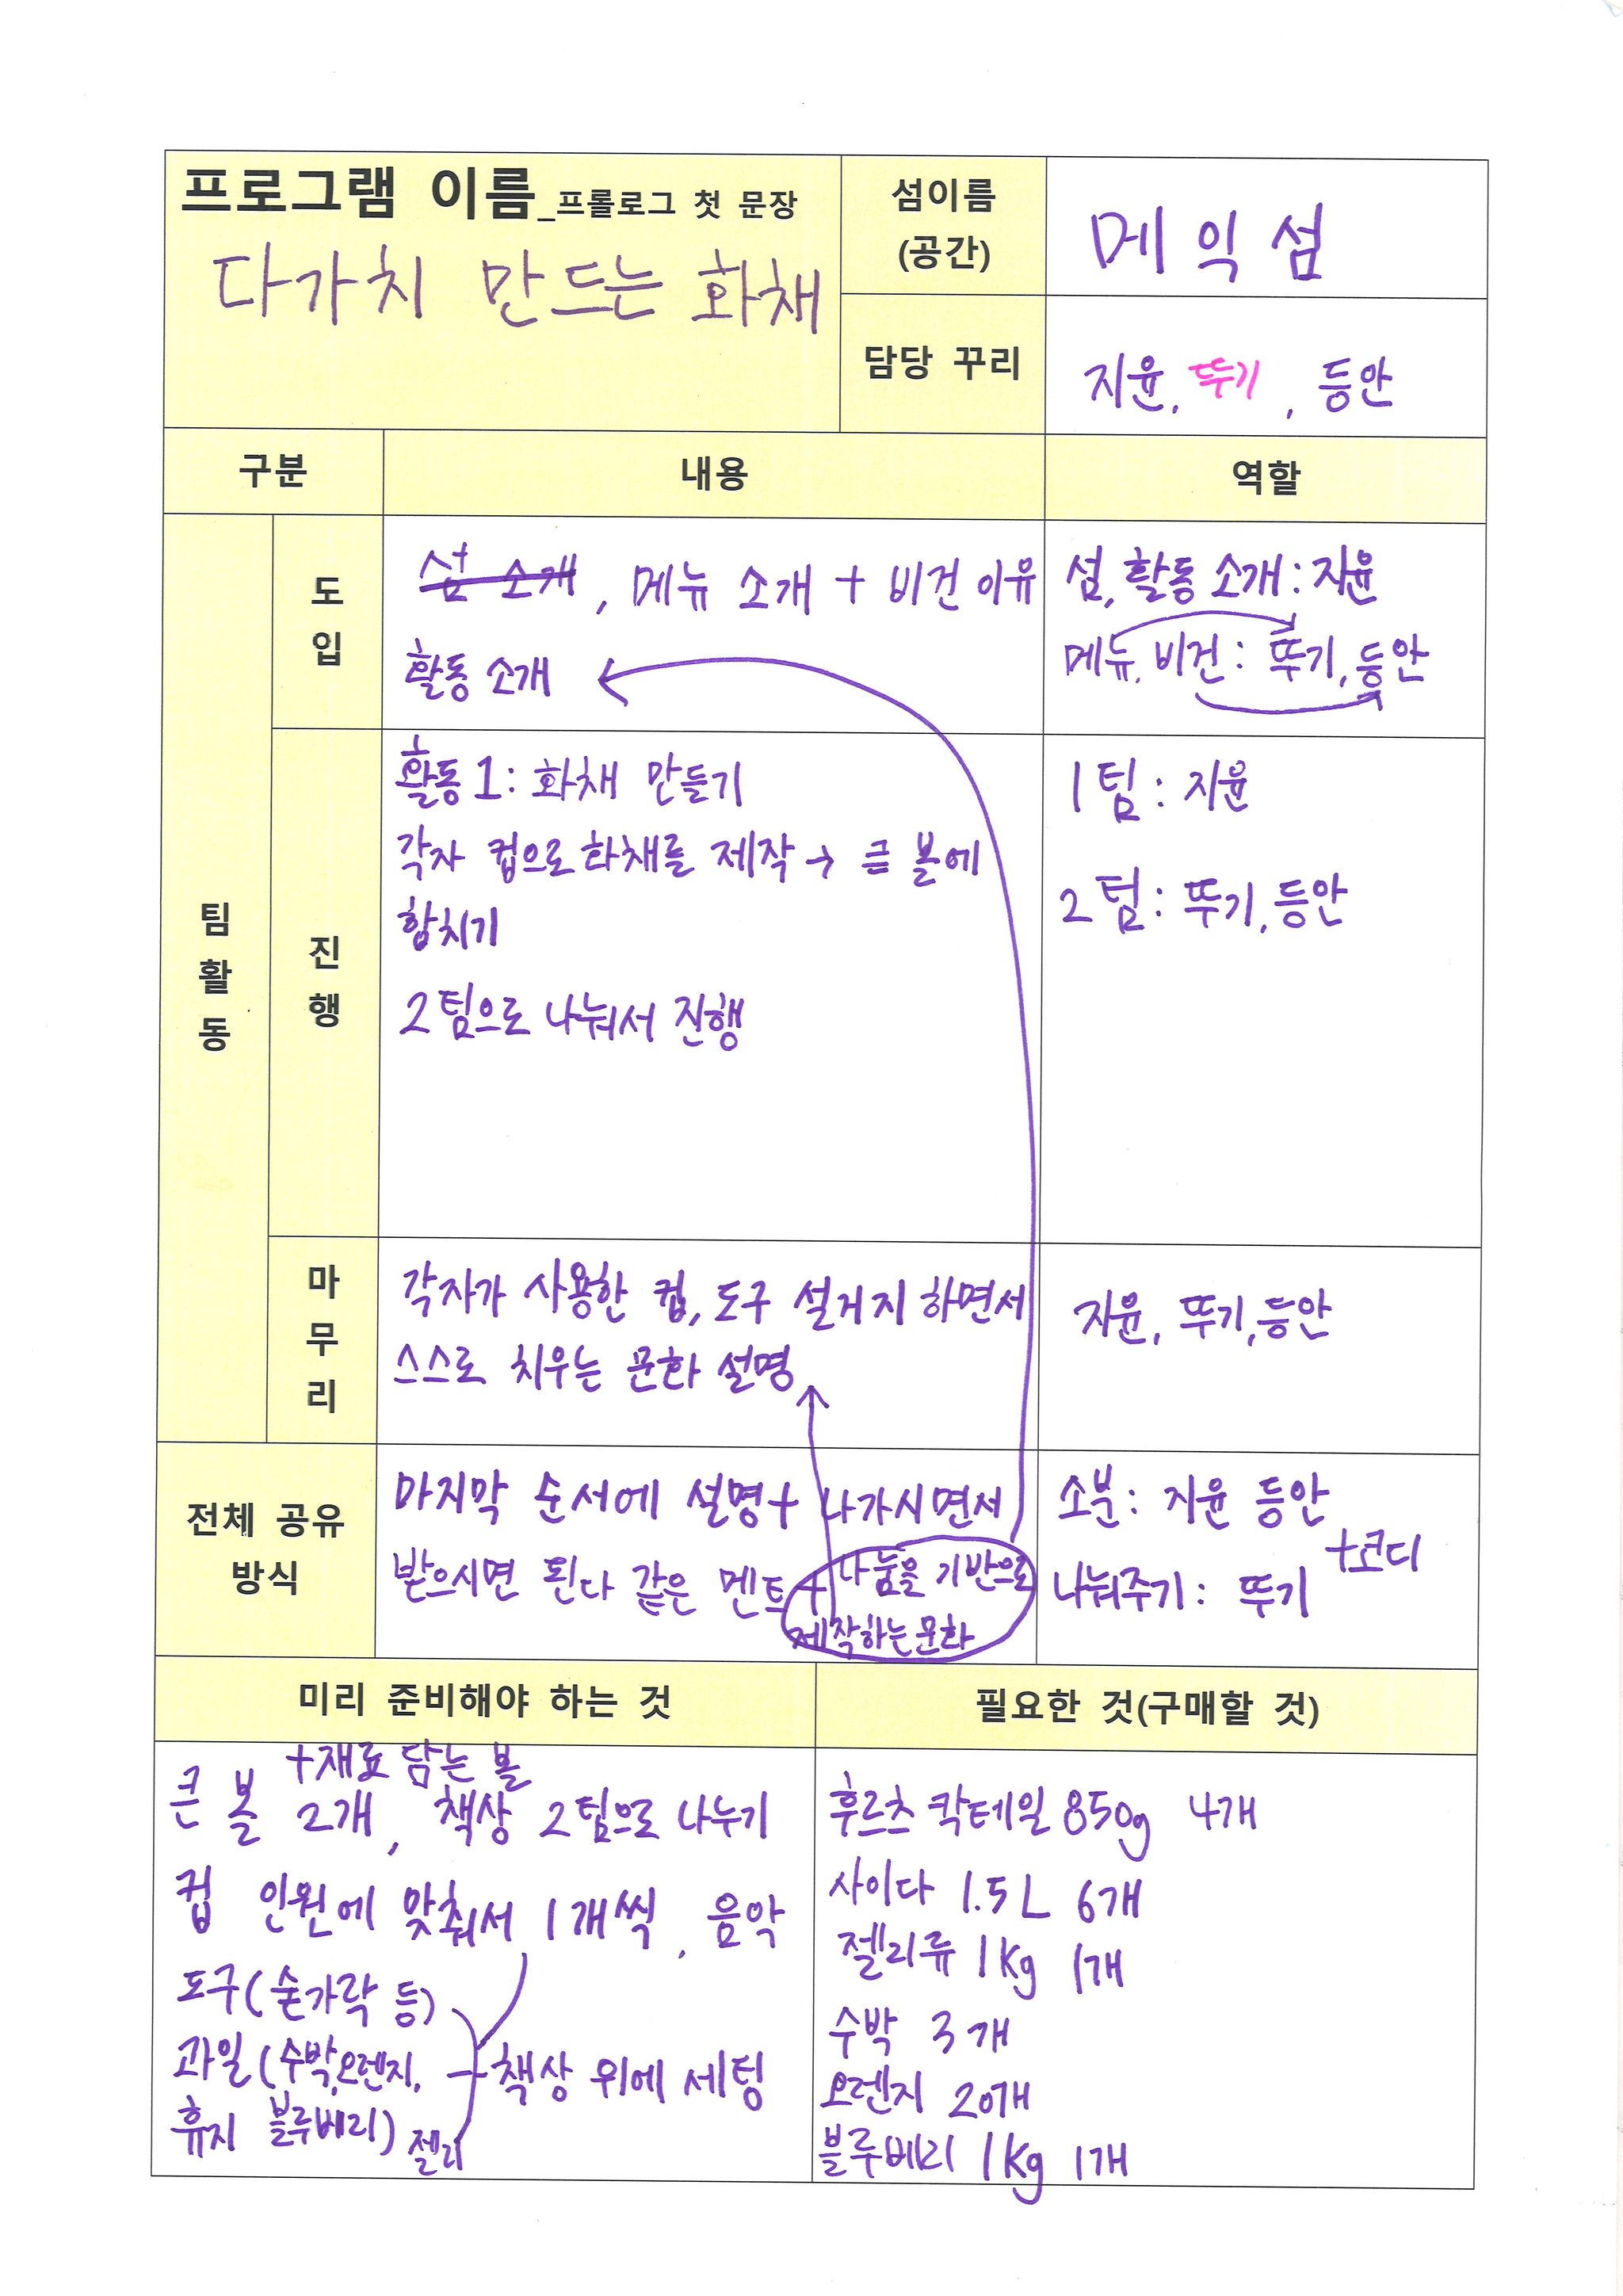 프로그램 이름_프롤로그 첫 문장
다가치 만드는 화채
섬이름
(공간)
메익섬
담당 꾸리
지윤, 뚜기, 등안
구분
내용
역할
팀활동
도입
섬 소개, 메뉴 소개 + 비건 이유
활동 소개
섬, 활동 소개 : 지윤
메뉴, 비건 : 뚜기, 등안
진행
활동 1 : 화채 만들기
각자 컵으로 화채를 제작 → 큰 볼에
합치기
2팀으로 나눠서 진행
1팀 : 지윤
2팀 : 뚜기, 등안
마무리
각자가 사용한 컵, 도구 설거지 하면서
스스로 치우는 문화 설명
지윤, 뚜기, 등안
전체 공유
방식
마지막 순서에 설명 + 나가시면서
받으시면 된다 같은 멘트 + 나눔을 기반으로
제작하는 문화
소분 : 지윤 등안
+코디
나눠주기 : 뚜기
미리 준비해야 하는 것
+재료 담는 볼
큰 볼 2개, 책상 2팀으로 나누기
컵 인원에 맞춰서 1개씩, 음악
도구(숟가락 등)
과일(수박,오렌지, 책상 위에 세팅
휴지 블루베리) 젤리
필요한 것(구매할 것)
후르츠 칵테일 850g 4개
사이다 1.5L 6개
젤리류 1kg 1개
수박 3개
오렌지 20개
블루베리 1kg 1개